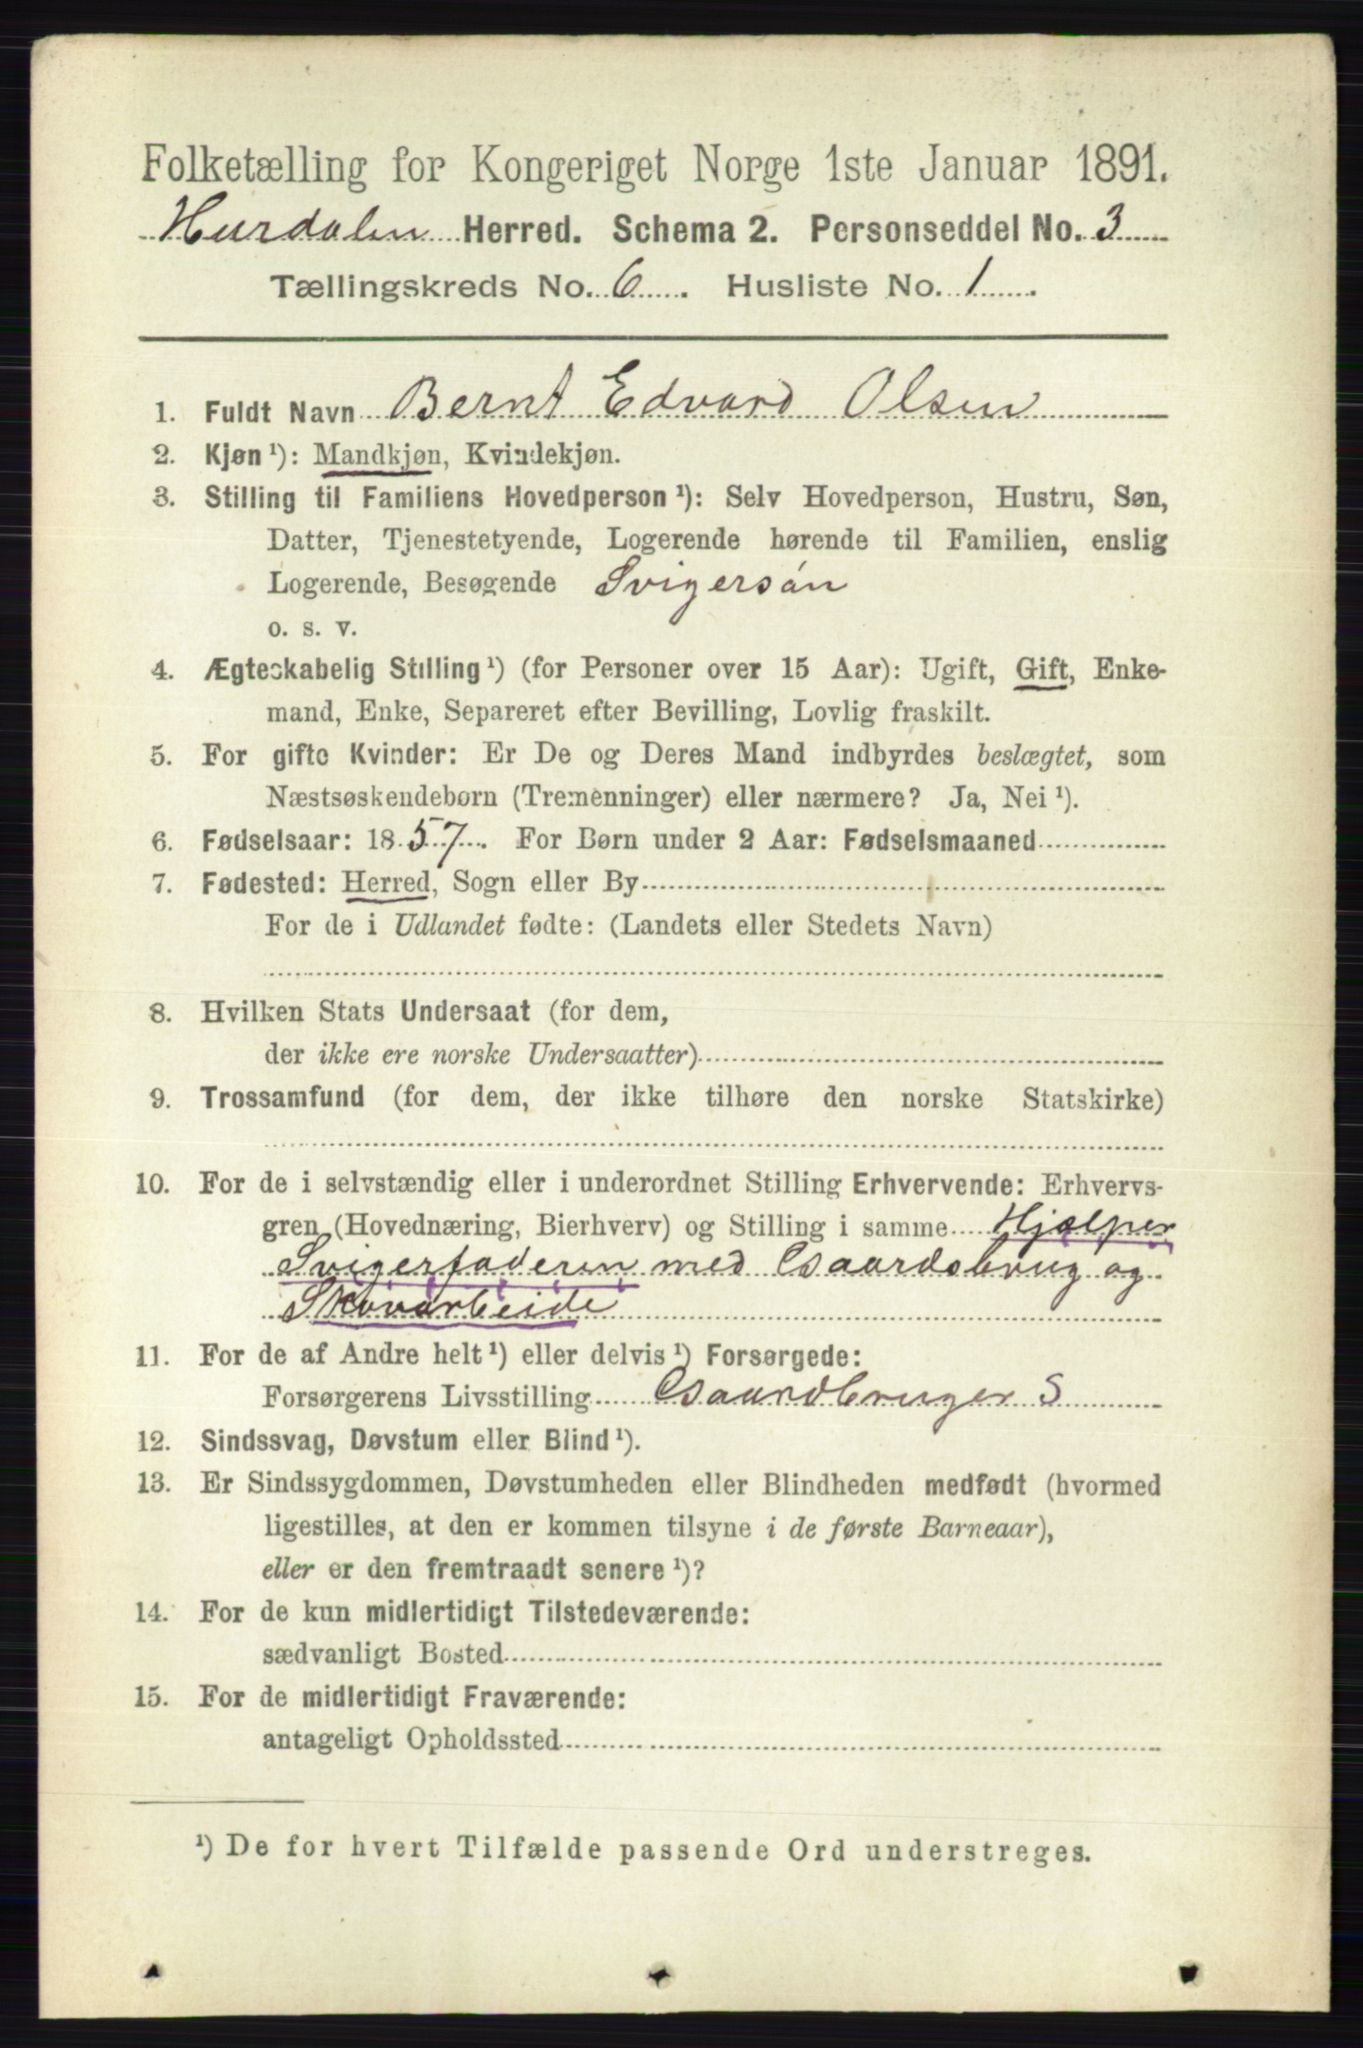 Folketælling for Kongeriget Norge 1ste Januar 1891.
Hurdalen Herred. Schema 2. Personseddel No. 3
Tællingskreds No. 6. Husliste No. 1.
1. Fuldt Navn Bernt Edvard Olsen
2. Kjøn ¹): Mandkjøn, Kvindekjøn.
3. Stilling til Familiens Hovedperson ¹): Selv Hovedperson, Hustru, Søn,
Datter, Tjenestetyende, Logerende hørende til Familien, enslig
Logerende, Besøgende Svigersón
o. s. v.
4. Ægteskabelig Stilling ¹) (for Personer over 15 Aar): Ugift, Gift, Enke-
mand, Enke, Separeret efter Bevilling, Lovlig fraskilt.
5. For gifte Kvinder: Er De og Deres Mand indbyrdes beslægtet, som
Næstsøskendebørn (Tremenninger) eller nærmere? Ja, Nei ¹).
6. Fødselsaar: 1857. For Børn under 2 Aar: Fødselsmaaned
7. Fødested: Herred, Sogn eller By
For de i Udlandet fødte: (Landets eller Stedets Navn)
8. Hvilken Stats Undersaat (for dem,
der ikke ere norske Undersaatter)
9. Trossamfund (for dem, der ikke tilhøre den norske Statskirke)
10. For de i selvstændig eller i underordnet Stilling Erhvervende: Erhvervs-
gren (Hovednæring, Bierhverv) og Stilling i samme Hjælper
Svigerfaderen med Gaardsbrug og
Skovarbeide
11. For de af Andre helt ¹) eller delvis ¹) Forsørgede:
Forsørgerens Livsstilling Gaardbruger S
12. Sindssvag, Døvstum eller Blind ¹).
13. Er Sindssygdommen, Døvstumheden eller Blindheden medfødt (hvormed
ligestilles, at den er kommen tilsyne i de første Barneaar),
eller er den fremtraadt senere ¹)?
14. For de kun midlertidigt Tilstedeværende:
sædvanligt Bosted
15. For de midlertidigt Fraværende:
antageligt Opholdssted
¹) De for hvert Tilfælde passende Ord understreges.